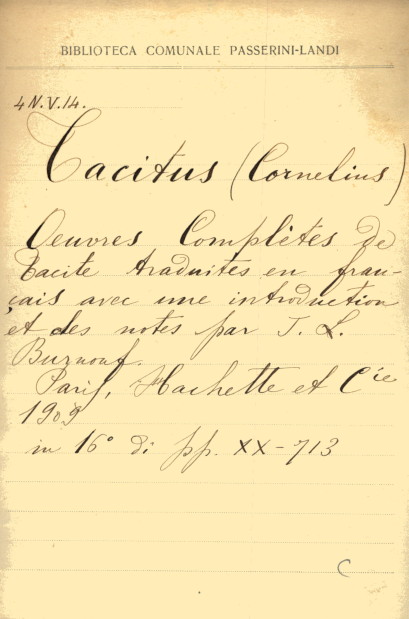 BIBLIOTECA COMUNALE PASSERINI-LANDI
4N.V.14.
Tacitus (Cornelius)
Oeuvres Complètes de
Tacite traduites en fran-
çais avec une introduction
et des notes par J. L.
Burnouf.
Paris, Hachette et Cie
1909
in 16° di pp. XX-713
C